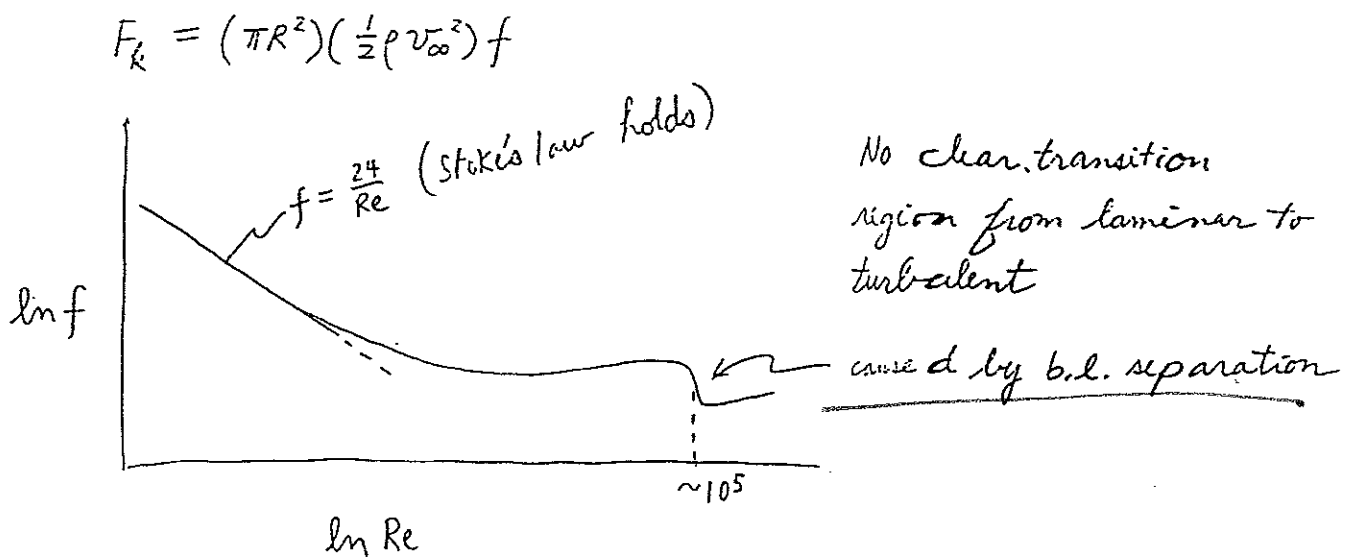 F_k = (πR²)(½ρv∞²)f
f = 24/Re (Stoke's law holds)
No clear transition
region from laminar to
turbulent
ln f
caused by b.l. separation
~10⁵
ln Re